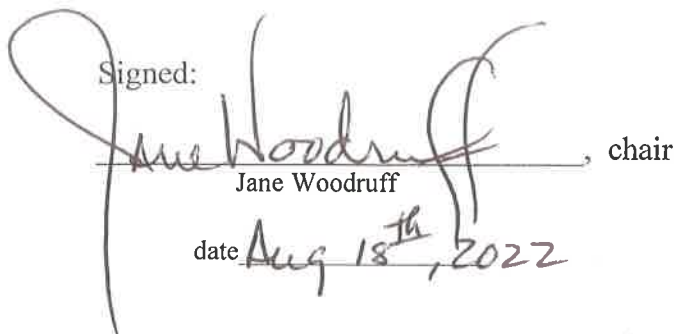 Signed:
Jane Woodruff, chair
Jane Woodruff
date Aug 18th, 2022